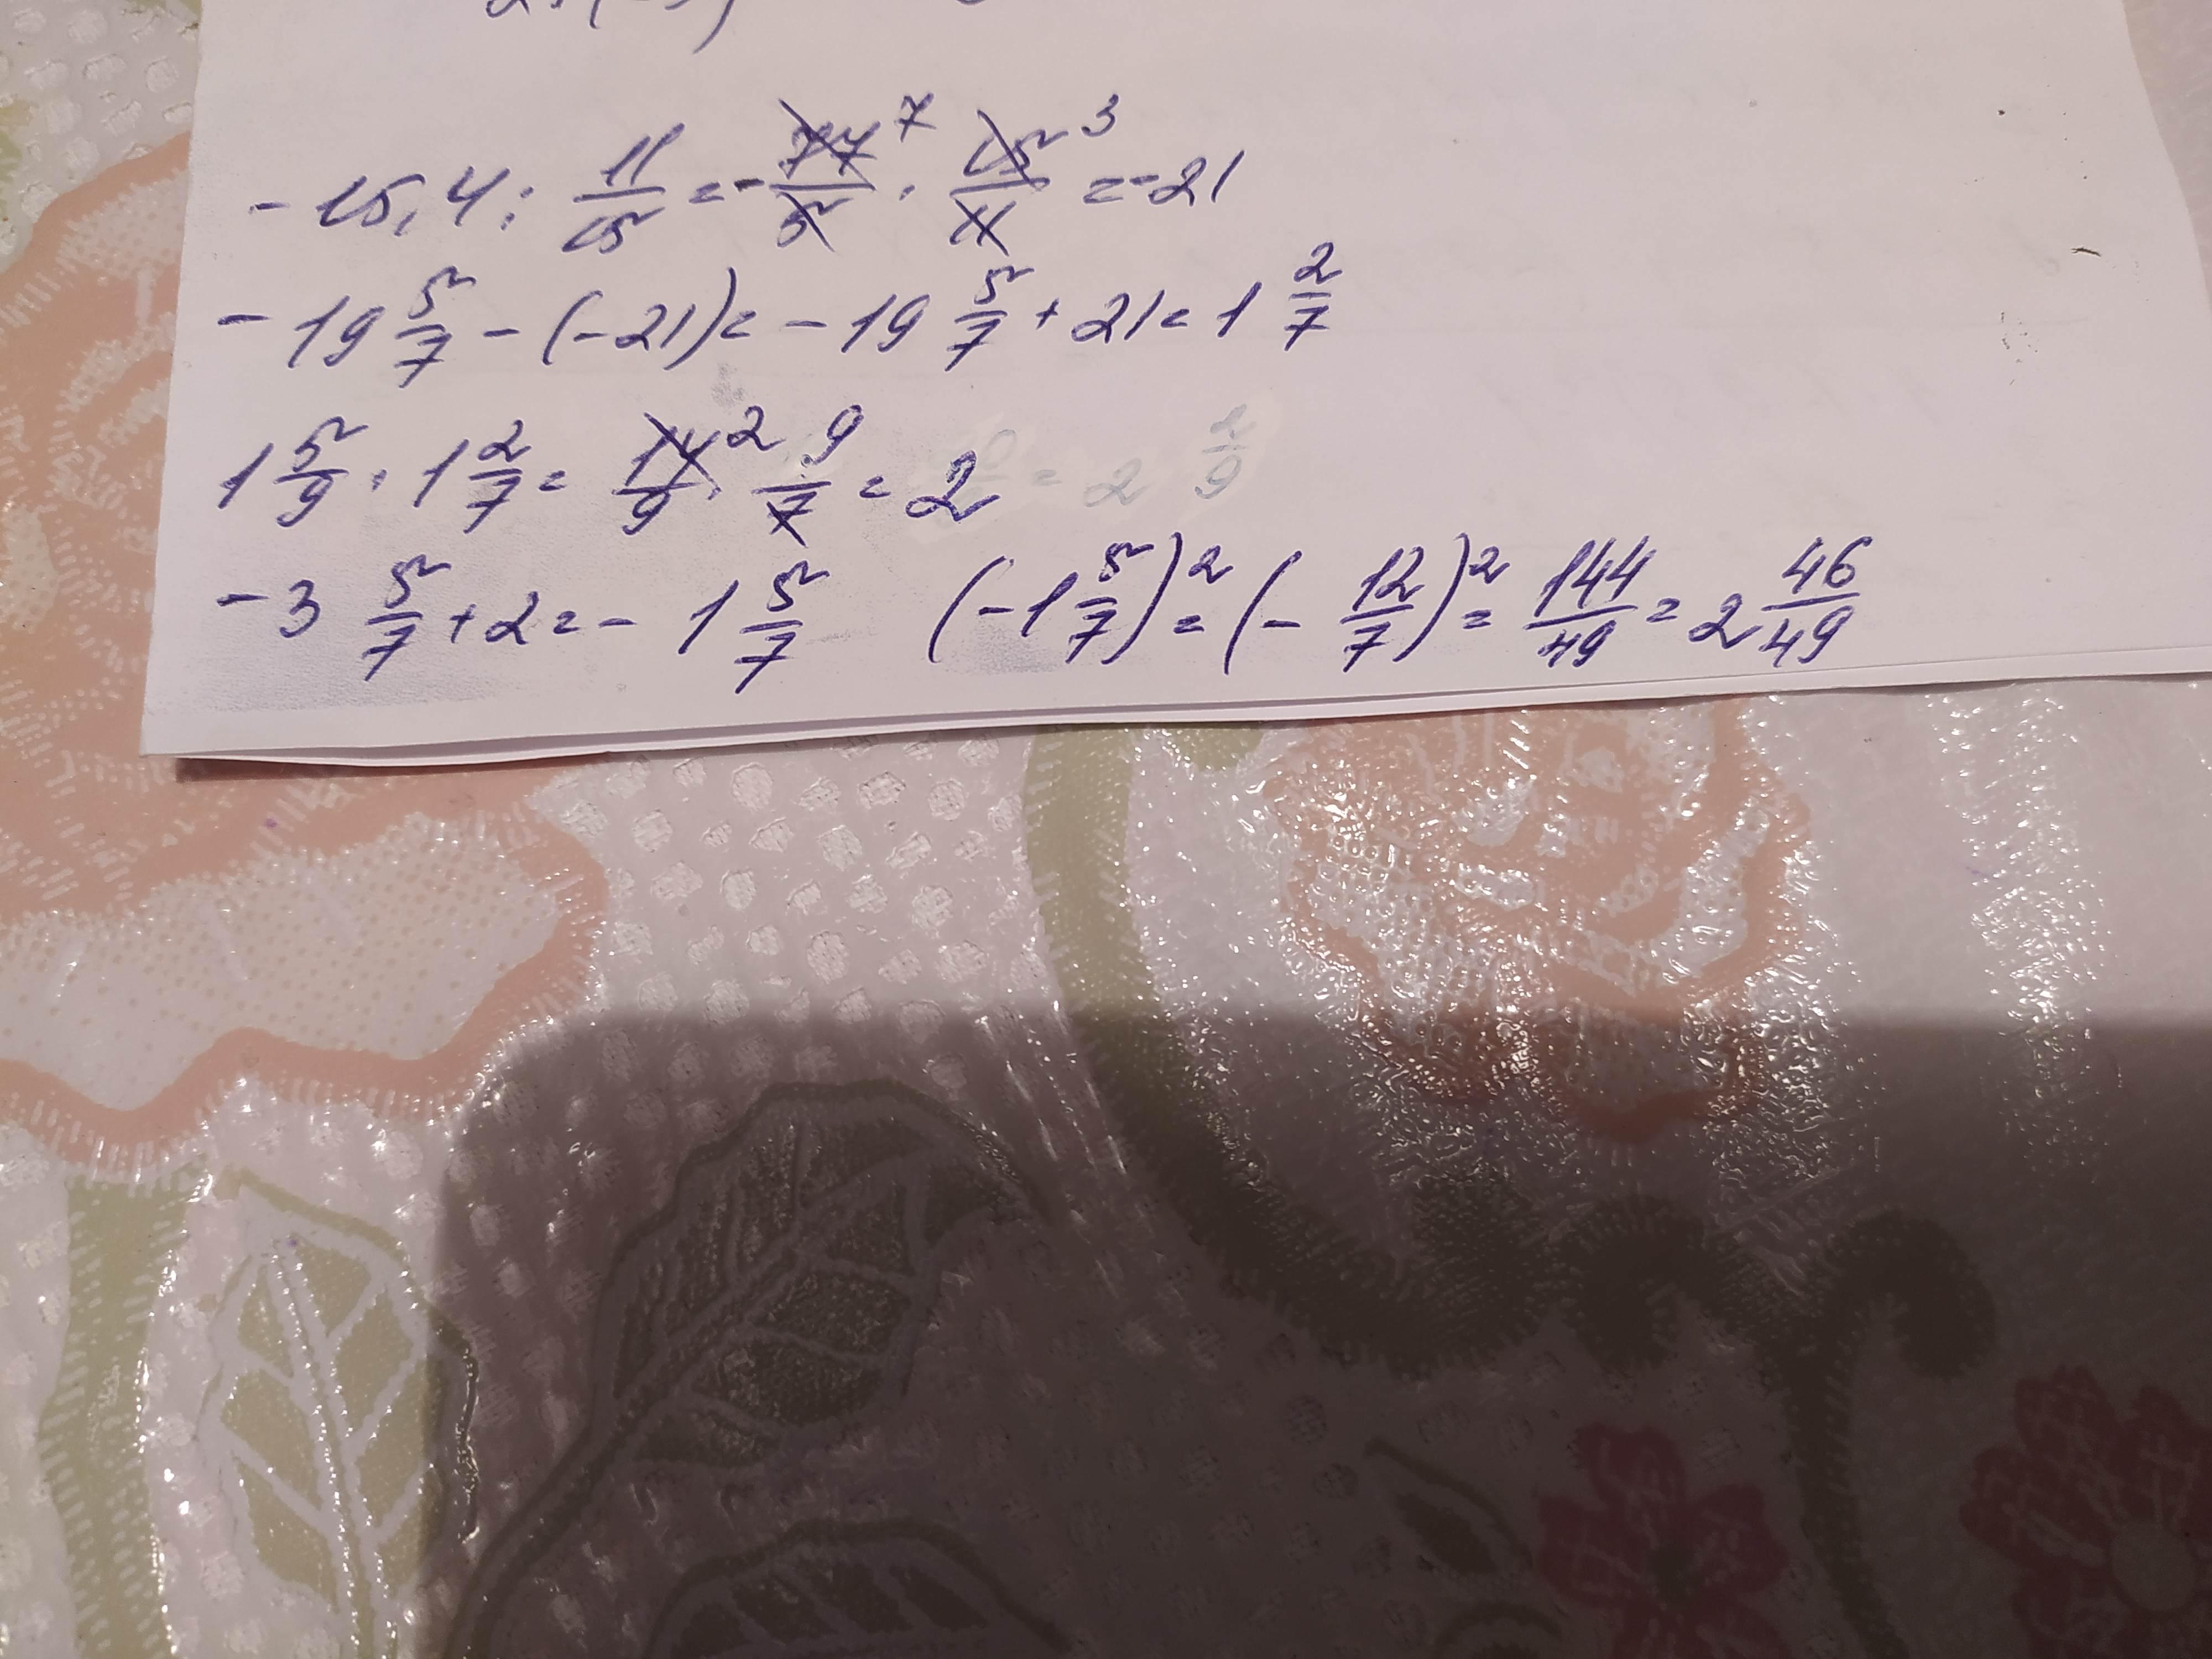 -15,4 : 11/15 = -77/5 7 · 15/11 3 = -21
-19 5/7 - (-21) = -19 5/7 + 21 = 1 2/7
1 5/9 · 1 2/7 = 14/9 2 · 9/7 = 2
-3 5/7 + 2 = -1 5/7 (-1 5/7)² = (-12/7)² = 144/49 = 2 46/49